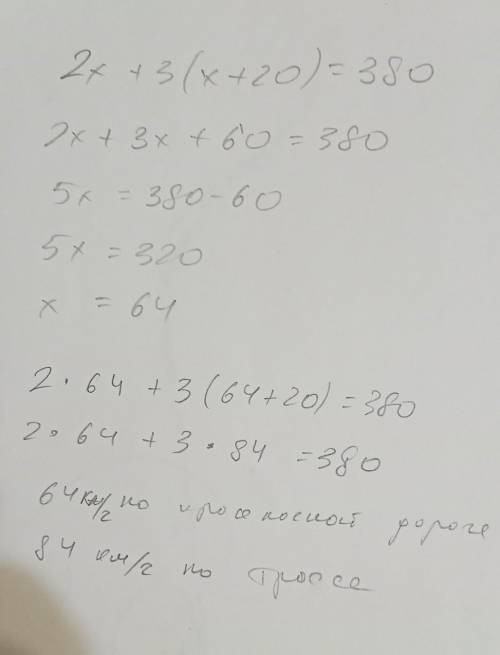 2x + 3(x+20) = 380
2x + 3x + 60 = 380
5x = 380 - 60
5x = 320
x = 64
2 · 64 + 3(64+20) = 380
2 · 64 + 3 · 84 = 380
64 км/ч по проселочной дороге
84 км/ч по трассе